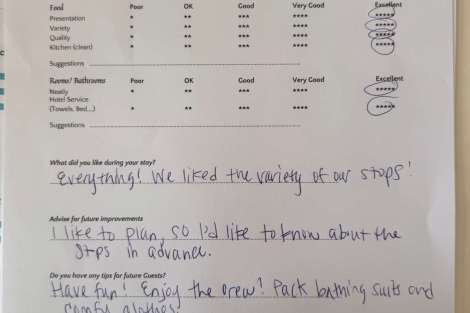 Food Poor OK Good Very Good Excellent
Presentation * ** *** **** *****
Variety * ** *** **** *****
Quality * ** *** **** *****
Kitchen (clean) * ** *** **** *****
Suggestions
Rooms/ Bathrooms Poor OK Good Very Good Excellent
Neatly * ** *** **** *****
Hotel Service
(Towels, Bed...) * ** *** **** *****
Suggestions
What did you like during your stay?
Everything! We liked the variety of our stops!
Advise for future improvements
I like to plan, so I'd like to know about the
stops in advance.
Do you have any tips for future Guests?
Have fun! Enjoy the crew! Pack bathing suits and
comfy clothes.